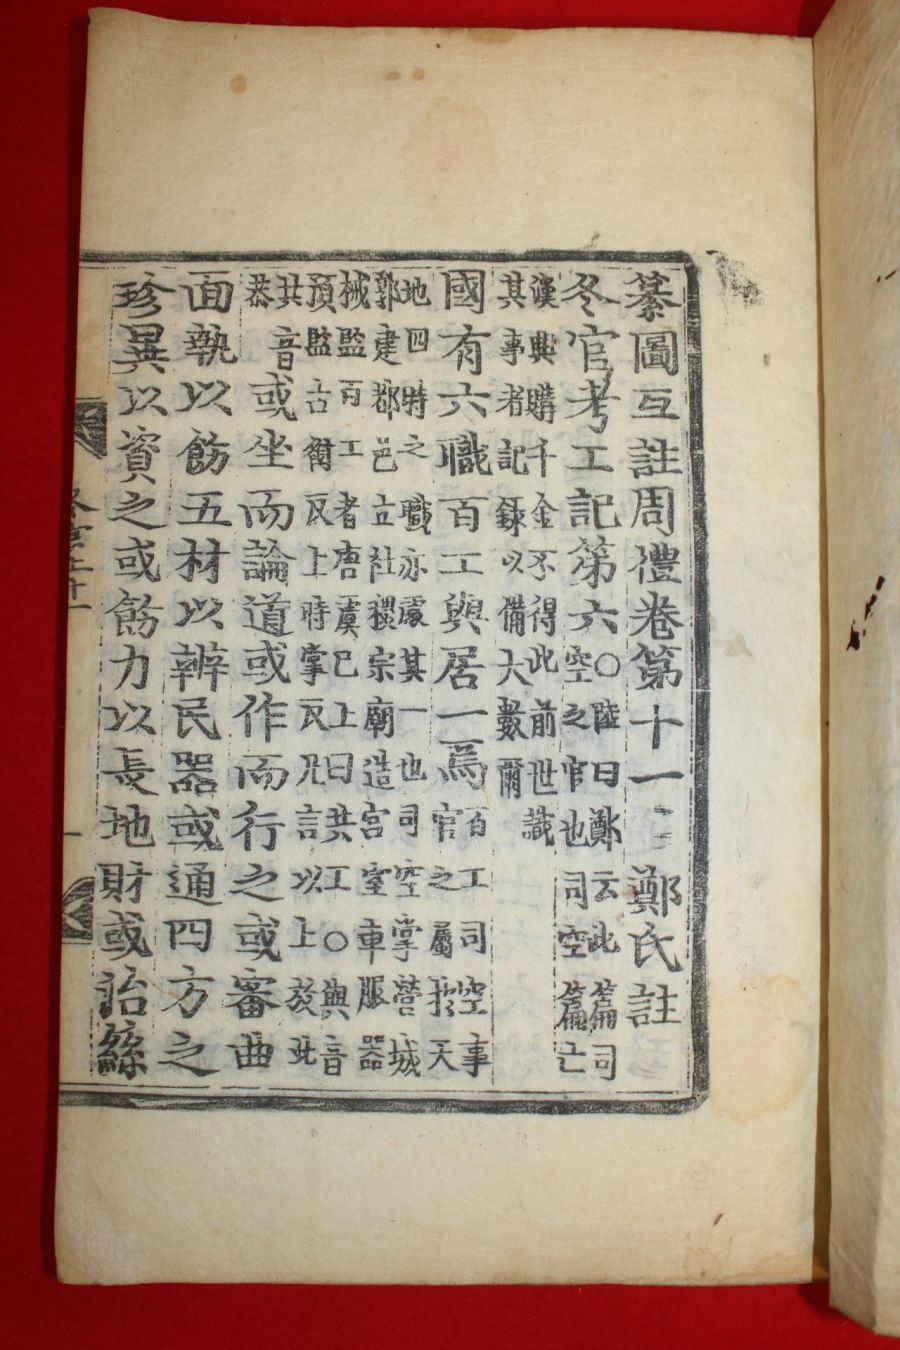 纂圖互註周禮卷第十一 鄭氏註
冬官考工記第六○陸曰鄭云此篇司空之官也司空篇亡
漢興購千金不得此前世識其事者記錄以備大數爾
國有六職百工與居一焉百工司空事官之屬於天
地四時之職亦處其一也司空掌營城郭建都邑立社稷宗廟造宮室車服器
械監百工者唐虞已上曰共工○與音預監古爾反上時掌反凡言以上放此
共音恭或坐而論道或作而行之或審曲
面執以飭五材以辨民器或通四方之
珍異以資之或飭力以長地財或治絲